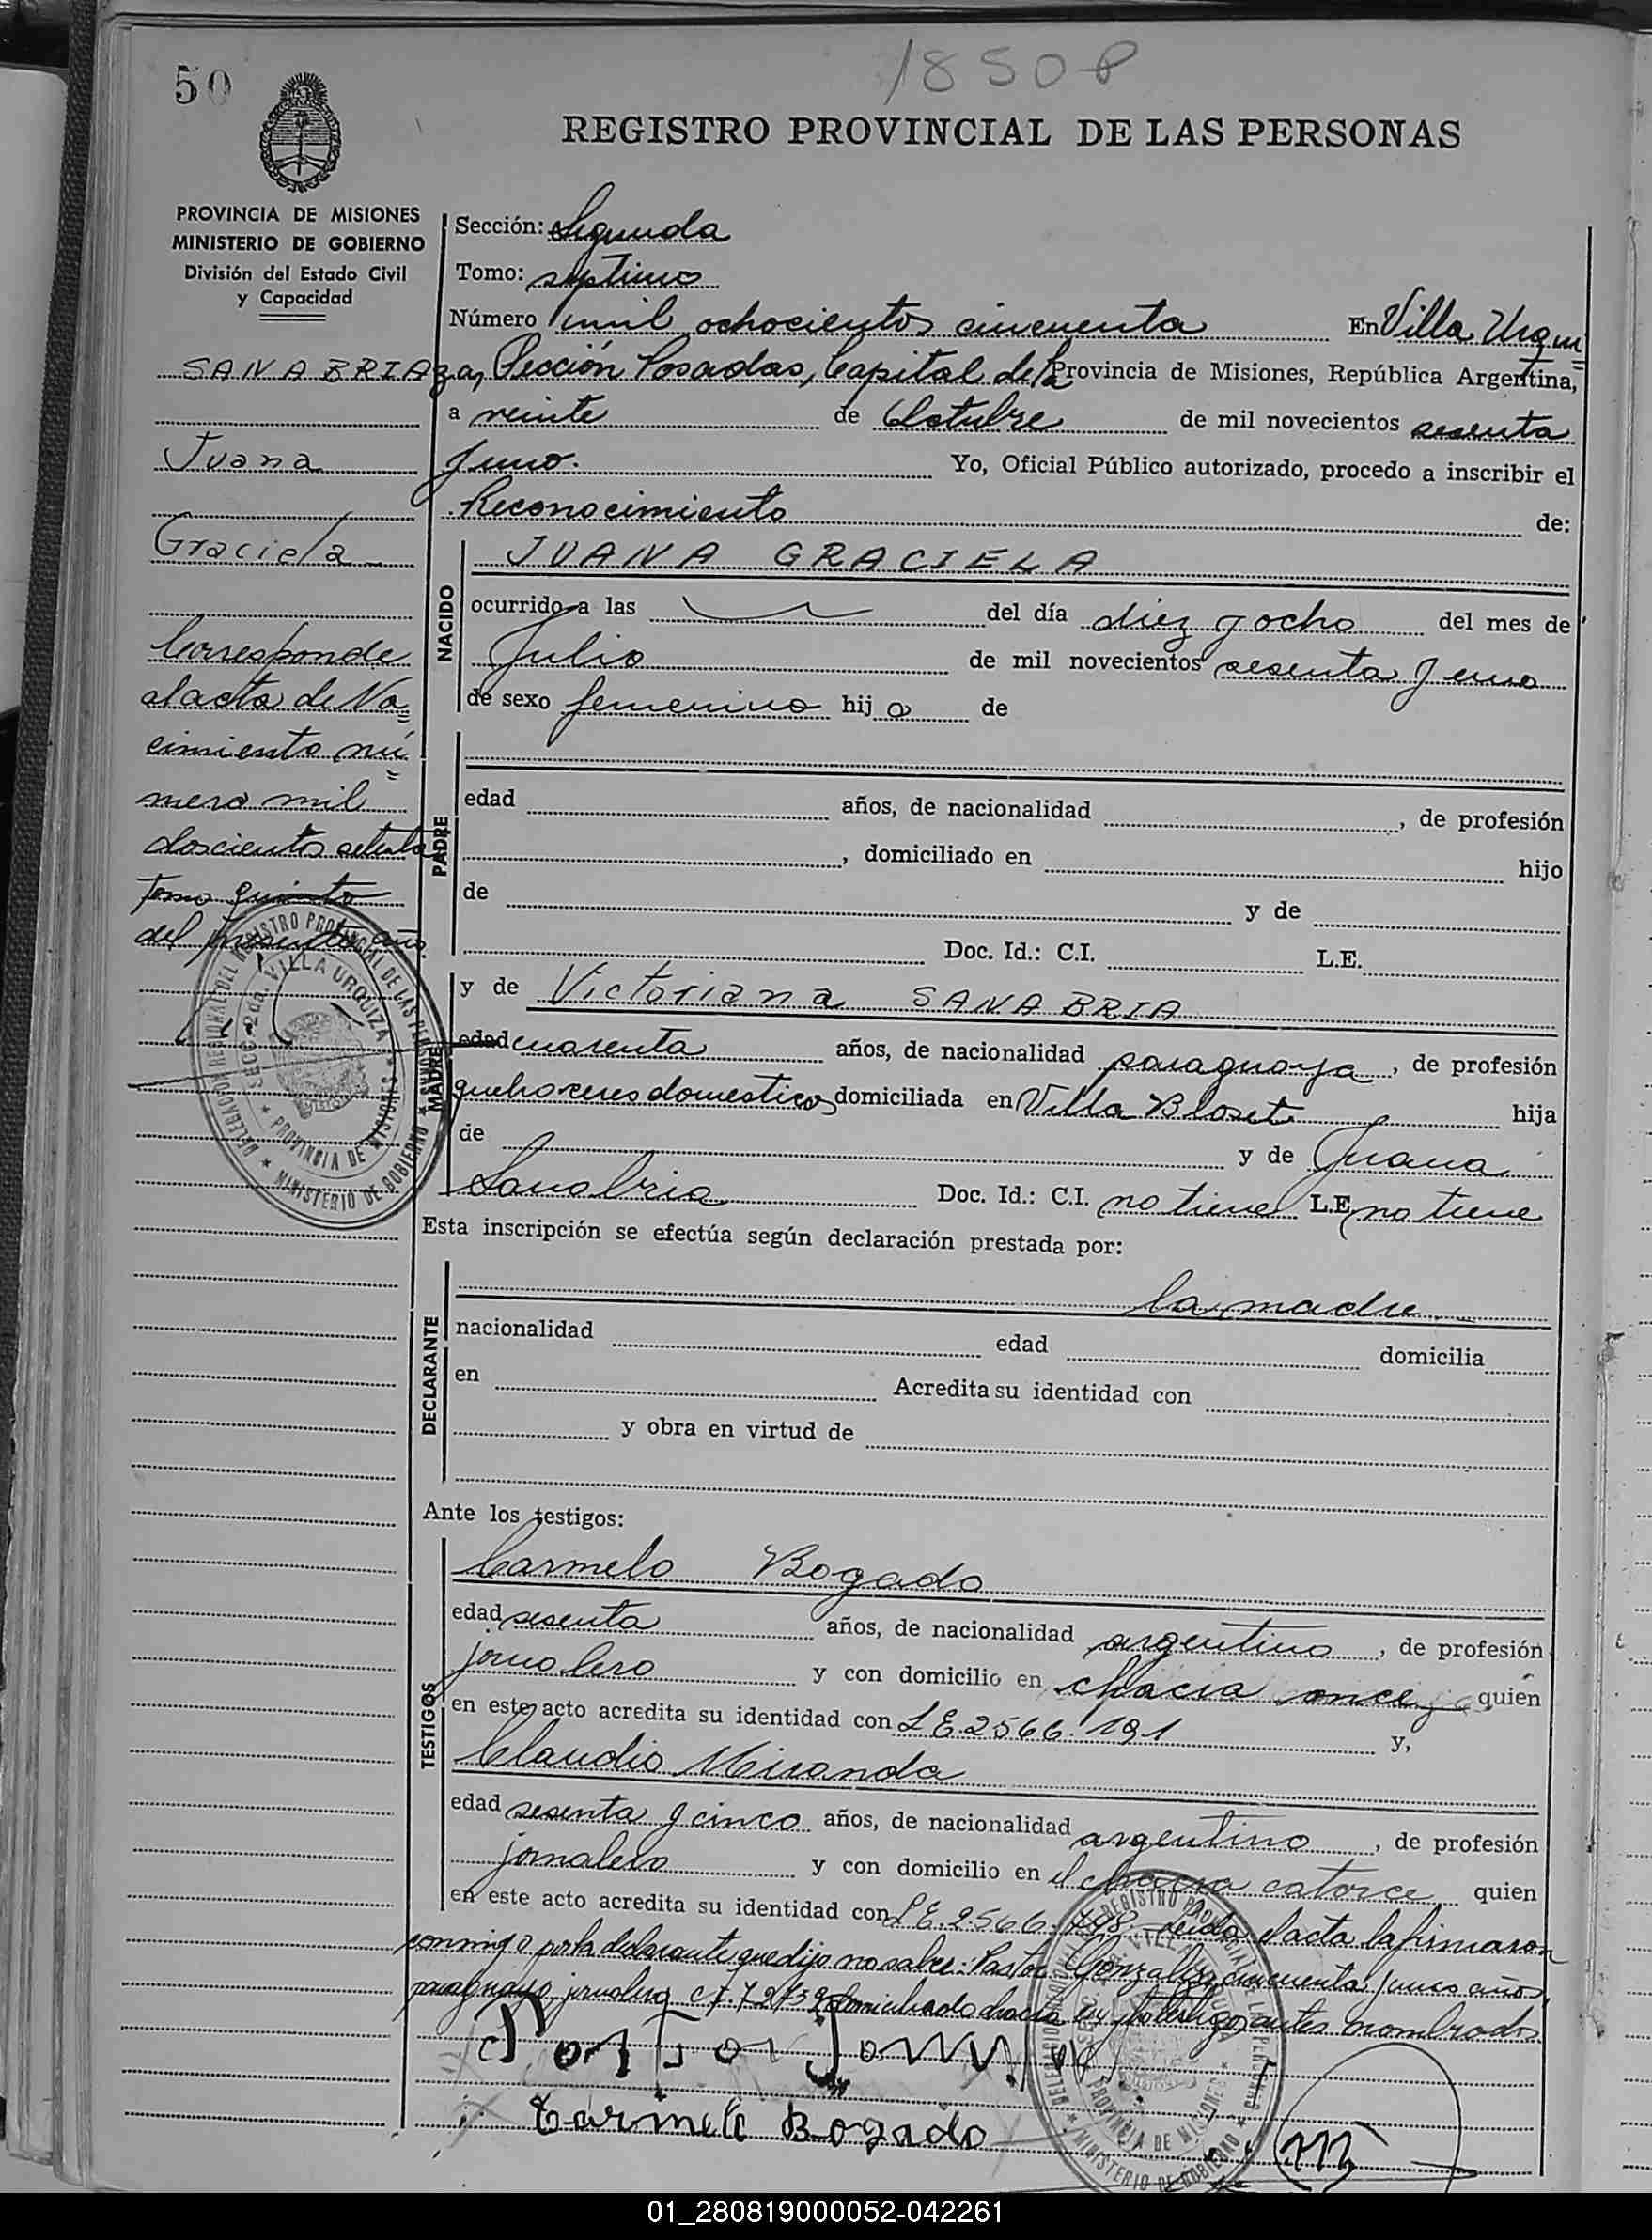 50
1850 P
REGISTRO PROVINCIAL DE LAS PERSONAS
PROVINCIA DE MISIONES
MINISTERIO DE GOBIERNO
División del Estado Civil
y Capacidad
SANABRIA
Juana
Graciela
Corresponde
al acta de Na=
cimiento nú=
mero mil
doscientos setenta
Tomo quinto
del presente año.
Sección: Segunda
Tomo: septimo
Número mil ochocientos cincuenta En Villa Urqui=
za, Sección Posadas, Capital de la Provincia de Misiones, República Argentina,
a veinte de Octubre de mil novecientos sesenta
y uno. Yo, Oficial Público autorizado, procedo a inscribir el
Reconocimiento de:
NACIDO
JUANA GRACIELA
ocurrido a las del día diez y ocho del mes de
Julio de mil novecientos sesenta y uno
de sexo femenino hija de
PADRE
edad años, de nacionalidad , de profesión
, domiciliado en hijo
de y de
Doc. Id.: C.I. L.E.
MADRE
y de Victoriana SANABRIA
edad cuarenta años, de nacionalidad paraguaya, de profesión
quehaceres domesticos domiciliada en Villa Bloset hija
de y de Juana
Sanabria Doc. Id.: C.I. no tiene L.E. no tiene
Esta inscripción se efectúa según declaración prestada por:
DECLARANTE
la madre
nacionalidad edad domicilia
en Acredita su identidad con
y obra en virtud de
Ante los testigos:
TESTIGOS
Carmelo Bogado
edad sesenta años, de nacionalidad argentino, de profesión
jornalero y con domicilio en chacra once quien
en este acto acredita su identidad con L E 2566.191 y,
Claudio Miranda
edad sesenta y cinco años, de nacionalidad argentino, de profesión
jornalero y con domicilio en el chacra catorce quien
en este acto acredita su identidad con L E. 2566. leida el acta la firmaron
conmigo por la declarante que dijo no saber: Pastor Gonzalez, cincuenta y unos años,
paraguayo, jornalero domiciliado chacra y testigos antes nombrados
Pastor
Carmelo Bogado
DELEGACION REGIONAL DEL REGISTRO PROVINCIAL DE LAS PERSONAS
SECC. 2da. VILLA URQUIZA
PROVINCIA DE MISIONES
MINISTERIO DE GOBIERNO
01_280819000052-042261